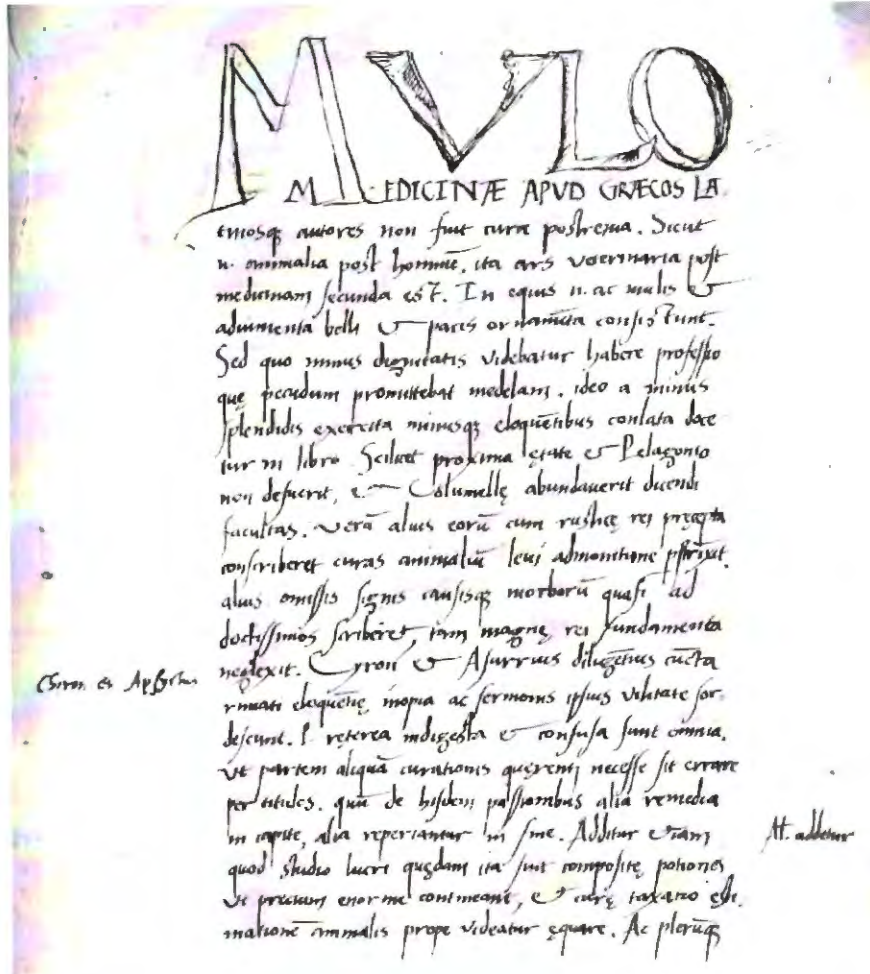 MVLO
MEDICINÆ APVD GRÆCOS LA.
tinosq; autores non fuit cura postrema. Sicut
n. animalia post hominē, ita ars veterinaria post
medicinam secunda est. In equis n. ac mulis &
adiumenta belli & pacis ornamēta consistunt.
Sed quo minus dignitatis videbatur habere professio
quę pecudum promittebat medelam. ideo a minus
splendidis exercita minusq; eloquētibus conlata doce
tur in libro. Scilicet proxima ętate & Pelagonio
non defuerit, & Columellę abundaverit dicendi
facultas. Verū alius eorū cum rusticę rei pręcepta
conscriberet curas animaliū levi admonitione pstrīxit.
alius omissis signis causisq; morborū quasi ad
doctissimos scriberet, tam magnę rei fundamenta
neglexit. Cyron & Asurrius diligētius cūcta
Chiron et Apsyrtus
rimati eloquētię inopia ac sermonis ipsius vilitate sor-
descunt. Pręterea indigesta & confusa sunt omnia,
ut partem aliquā curationis quęrenti necesse sit errare
per titulos. quū de hisdem passionibus alia remedia
in capite, alia reperiantur in fine. Additur etiam
At. addetur
quod studio lucri quędam ita sunt compositę potiones
ut precium enorme contineant, & curę taxatio ęsti.
mationē animalis prope videatur ęquare. Ac plerūq;